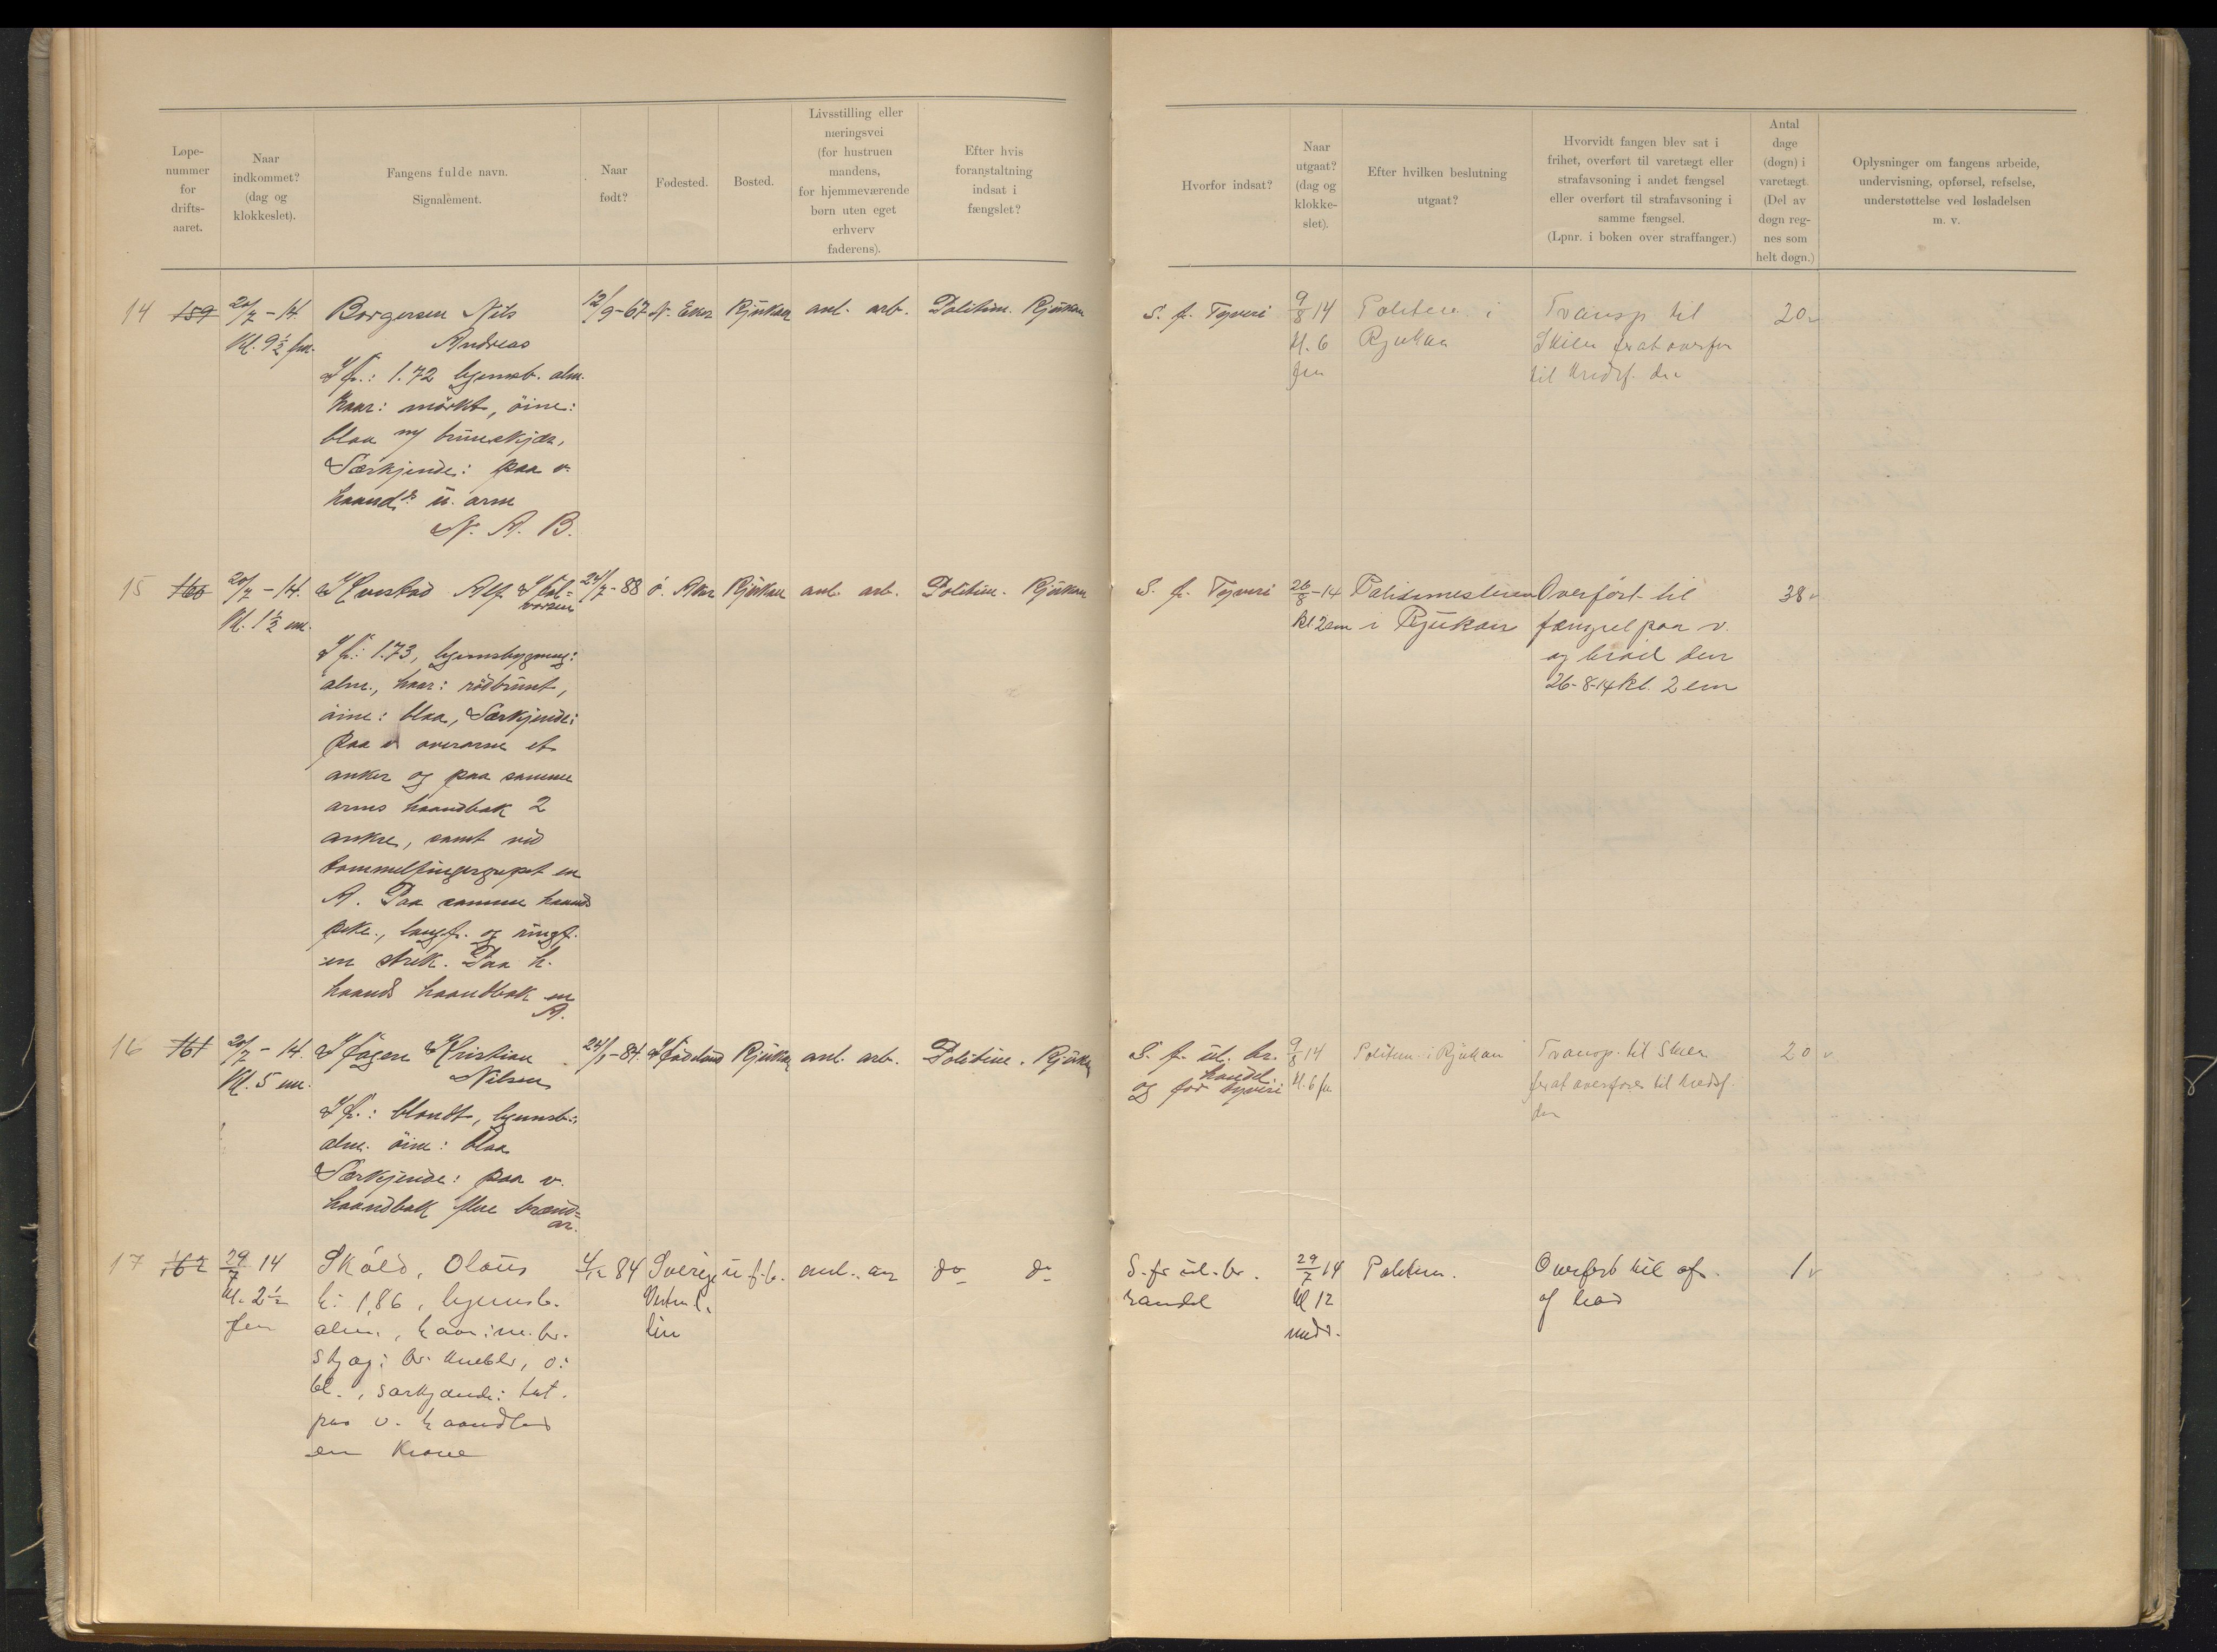 Løpe-
nummer
for
drifts-
aaret.
Naar
indkommet?
(dag og
klokkeslet).
Fangens fulde navn.
Signalement.
Naar
født?
Fødested.
Bosted.
Livsstilling eller
næringsvei
(for hustruen
mandens,
for hjemmeværende
børn uten eget
erhverv
faderens).
Efter hvis
foranstaltning
indsat i
fængslet?
Hvorfor indsat?
Naar
utgaat?
(dag og
klokke-
slet).
Efter hvilken beslutning
utgaat?
Hvorvidt fangen blev sat i
frihet, overført til varetægt eller
strafavsoning i andet fængsel
eller overført til strafavsoning i
samme fængsel.
(Lpnr. i boken over straffanger.)
Antal
dage
(døgn) i
varetægt.
(Del av
døgn reg-
nes som
helt døgn.)
Oplysninger om fangens arbeide,
undervisning, opførsel, refselse,
understøttelse ved løsladelsen
m. v.
14 159 20/7 - 14. Borgersen Nils 12/9-67 N. Eker Rjukan anl. arb. Politim. Rjukan
Kl. 9½ fm. Andreas
: 1.72 legemsb. alm.
haar: mörkt, öine:
blaa m/ brune skjær,
Særkjende: paa v.
haand u. arm
N. A. B.
S. f. Tyveri 9/8 14 Politim. i Transp til 20
Kl. 6 Rjukan Skien for at overfør
fm til kredsf. der
15 160 20/7 - 14. Alf 24/7-88 Ø. Aker Rjukan anl. arb. Politim. Rjukan
Kl. 1½ em.
1.73, legemsbygning:
alm., haar: rödbrunt,
öine: blaa, Særkjende:
Paa v overarm et
anker og paa samme
arms haandbak 2
ankre, samt ved
tommelfingergrepet en
A. Paa samme haands
peke., langf. og ringf.
en strek. Paa h.
haands haandbak en
A.
S. f. Tyveri 26/8-14 Politimesteren Overført til 38
kl 2 em i Rjukan fængsel paa v.
og bröd den
26-8-14 kl. 2 em
16 161 20/7 - 14. Kristian 24/1-84 Rjukan anl. arb. Politim. Rjukan
Kl. 5 em. Nilsen
: blondt, legemsb.:
alm. öine: blaa
Særkjende: paa v.
haandbak flere brænd=
ar.
S. f. ul. br. 9/8 14 Politim. i Rjukan Transp. til Skien 20
handel Kl. 6 fm for at overføres til kredsf.
og for tyveri der
17 162 29/7 14 Sköld, Olaus 4/12 84 Sverige u.f.b. anl. arb do do
Kl. 2½ h: 1,86, legemsb.
fm alm., haar: m. br.
skjæg: br. knebler, ö:
bl., særkjende: tat.
paa v. haandled
en Krone
S. for ul. br. 29/7 14 Politim. Overført til 1
handel kl 12